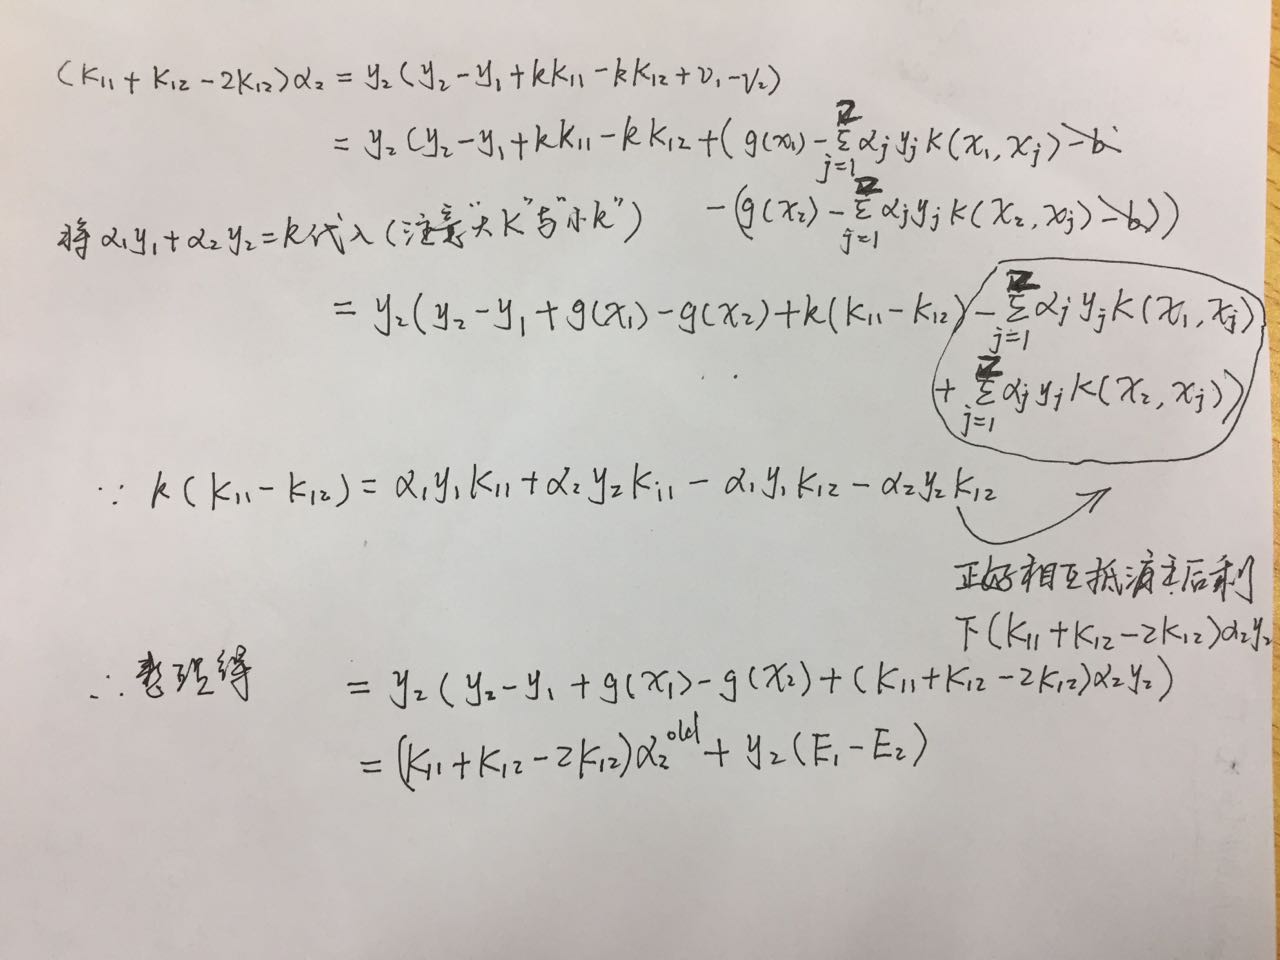 (K₁₁ + K₁₂ - 2K₁₂)α₂ = y₂(y₂ - y₁ + kK₁₁ - kK₁₂ + v₁ - v₂)
= y₂(y₂ - y₁ + kK₁₁ - kK₁₂ + (g(x₁) - Σ_{j=1}^{2} αⱼyⱼK(x₁, xⱼ) - b
将α₁y₁ + α₂y₂ = k代入(注意"大K"与"小k") - (g(x₂) - Σ_{j=1}^{2} αⱼyⱼK(x₂, xⱼ) - b))
= y₂(y₂ - y₁ + g(x₁) - g(x₂) + k(K₁₁ - K₁₂) - Σ_{j=1}^{2} αⱼyⱼK(x₁, xⱼ)
+ Σ_{j=1}^{2} αⱼyⱼK(x₂, xⱼ))
∵ k(K₁₁ - K₁₂) = α₁y₁K₁₁ + α₂y₂K₁₁ - α₁y₁K₁₂ - α₂y₂K₁₂
正好相互抵消之后剩
下(K₁₁ + K₁₂ - 2K₁₂)α₂y₂
∴ 整理得 = y₂(y₂ - y₁ + g(x₁) - g(x₂) + (K₁₁ + K₁₂ - 2K₁₂)α₂y₂)
= (K₁₁ + K₁₂ - 2K₁₂)α₂^{old} + y₂(E₁ - E₂)